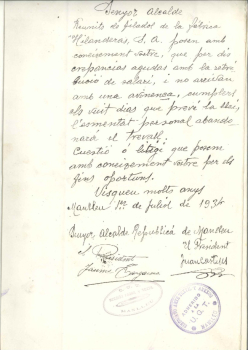 Senyor Alcalde
Reunits els filadors de la fàbrica
"Hilanderas, S.A. posem amb
coneixement vostre, que per dis
crepancies agudes amb la retri
bució de salari, i no arrivan
amb una avinença, cumplerts
els vuit dias que prevé la llei,
l'esmentat personal abando
narà el trevall.
Cuestió o litigi que posem
amb coneigement vostre per els
fins oportuns.
Visqueu molts anys
Manlleu 1er de juliol de 1934
Senyor Alcalde Republicà de Manlleu
el President
El President
Jaume
Joan
U.G.T.
MANLLEU